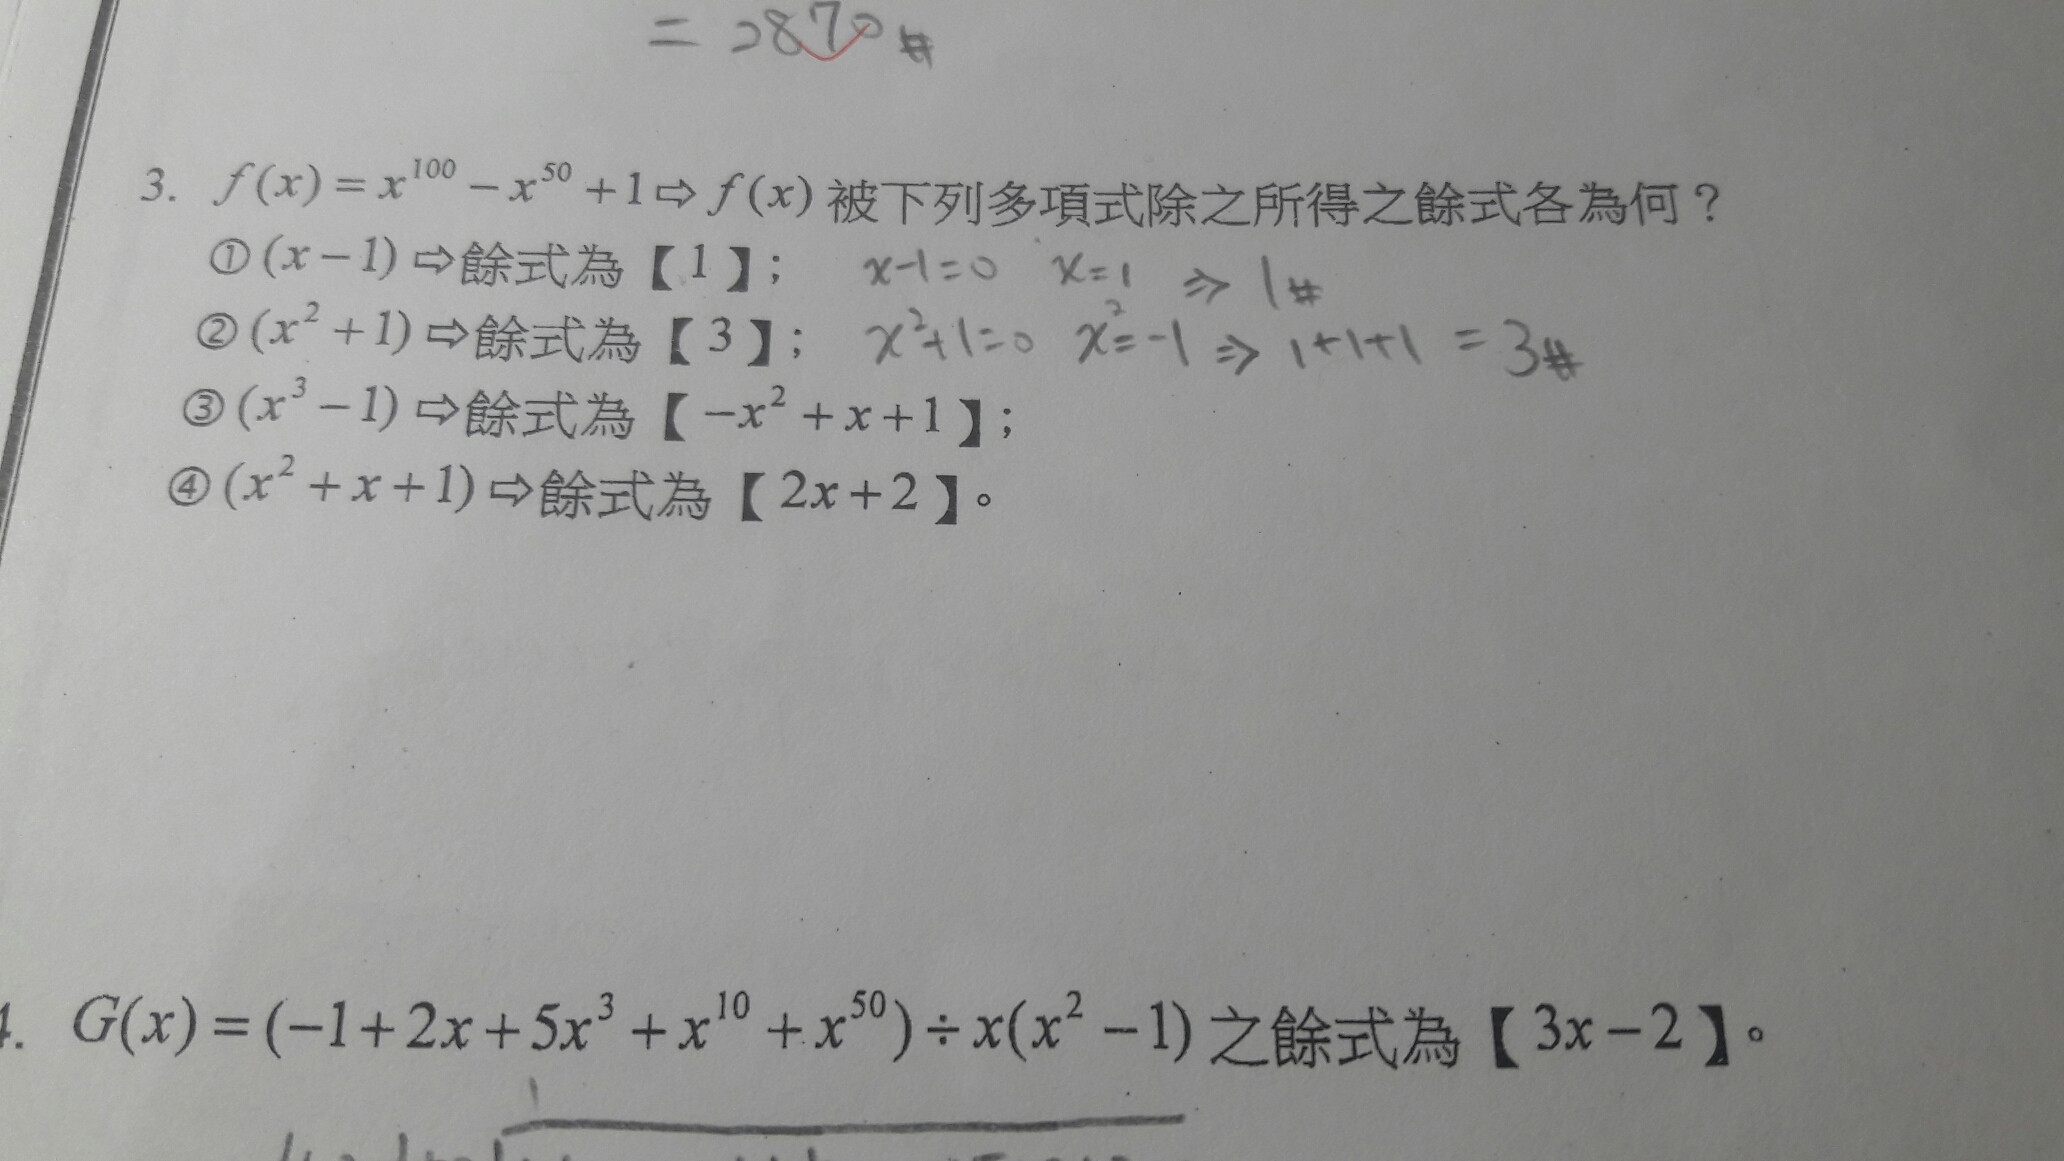 = 2870 #
3. f(x) = x^100 − x^50 + 1 ⇨ f(x) 被下列多項式除之所得之餘式各為何？
① (x − 1) ⇨ 餘式為【1】； x-1=0 x=1 ⇒ 1#
② (x² + 1) ⇨ 餘式為【3】； x²+1=0 x²=-1 ⇒ 1+1+1 = 3#
③ (x³ − 1) ⇨ 餘式為【−x² + x + 1】；
④ (x² + x + 1) ⇨ 餘式為【2x + 2】。
4. G(x) = (−1 + 2x + 5x³ + x^10 + x^50) ÷ x(x² − 1) 之餘式為【3x − 2】。